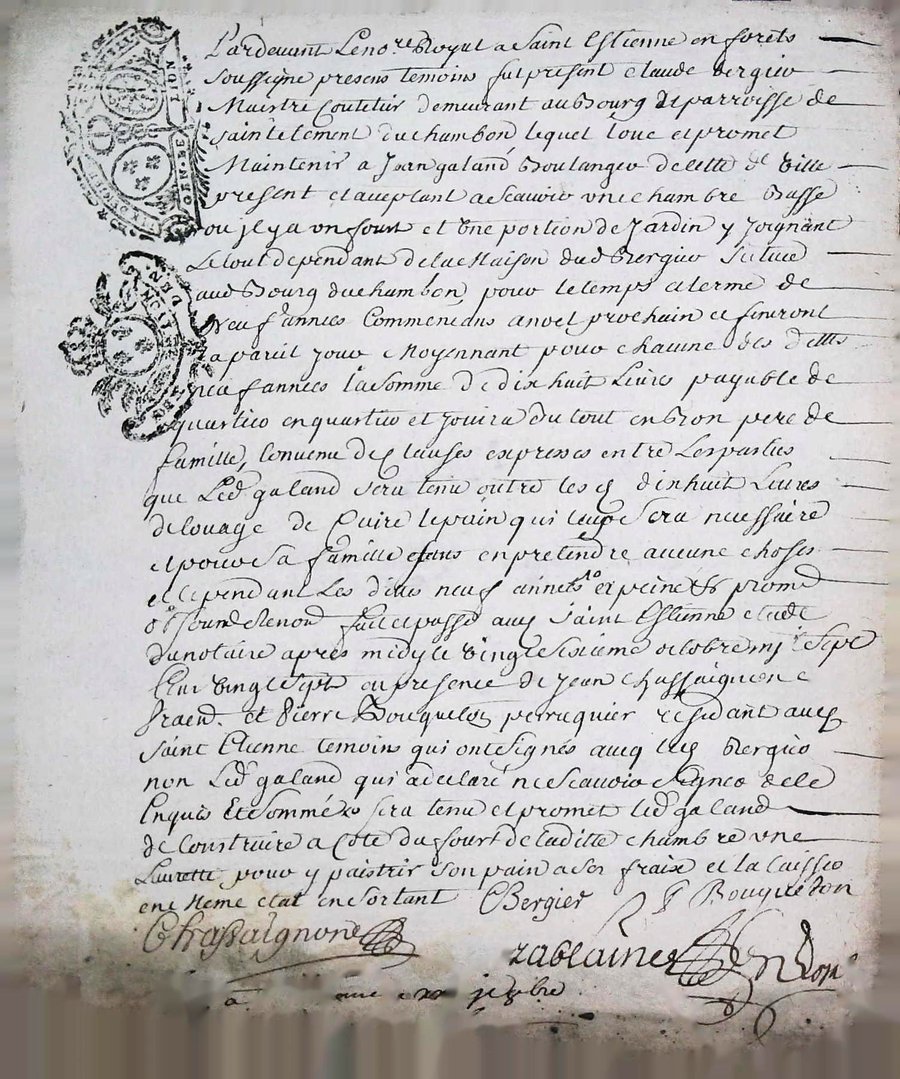 Pardevant Le no.re Royal a Saint Estienne en forets
soussigne presens temoins fut present claude Bergier
Maistre Coutelier demeurant au Bourg & parroisse de
saint clement du chambon lequel loue et promet
Maintenir a Jean galand Boulanger de cette de Ville
present et aceptant a scavoir une chambre Basse
ou il y a un fourt et une portion de Jardin y Joignant
Le tout dependant de la Maison dud Bergier scitué
aud Bourg du chambon, pour le temps et terme de
Neuf années Commencans a noel prochain et finiront
a pareil jour Moyennant pour chacune des dittes
neuf années la somme de dix huit Livres payable de
quartier en quartier et jouira du tout en Bon pere de
famille, Convenu de clauses expresses entre Les parties
que Led galand sera tenu outre les dix huit Livres
de louage de Cuire le pain qui sera necessaire
et pour sa famille sans en pretendre aucune choses
et ce pendant Les dites neuf années et peine &c promd
fait et passé aud Saint Estienne etude
du notaire apres midy le Vingt sixieme octobre mil sept
Cent Vingt sept en presence de Jean Chassaignone
et Pierre Bouqueton perruquier residant aud
Saint Etienne temoins qui ont signés avec led Bergier
non Led galand qui a declaré ne scavoir signer de ce
Enquis Et Sommé sera tenu et promet led galand
de Construire a Coté du fourt de laditte chambre une
pour y paistrir son pain a ses fraix et la laisser
en Meme etat en sortant CBergier P Bouqueton
Chassaignone